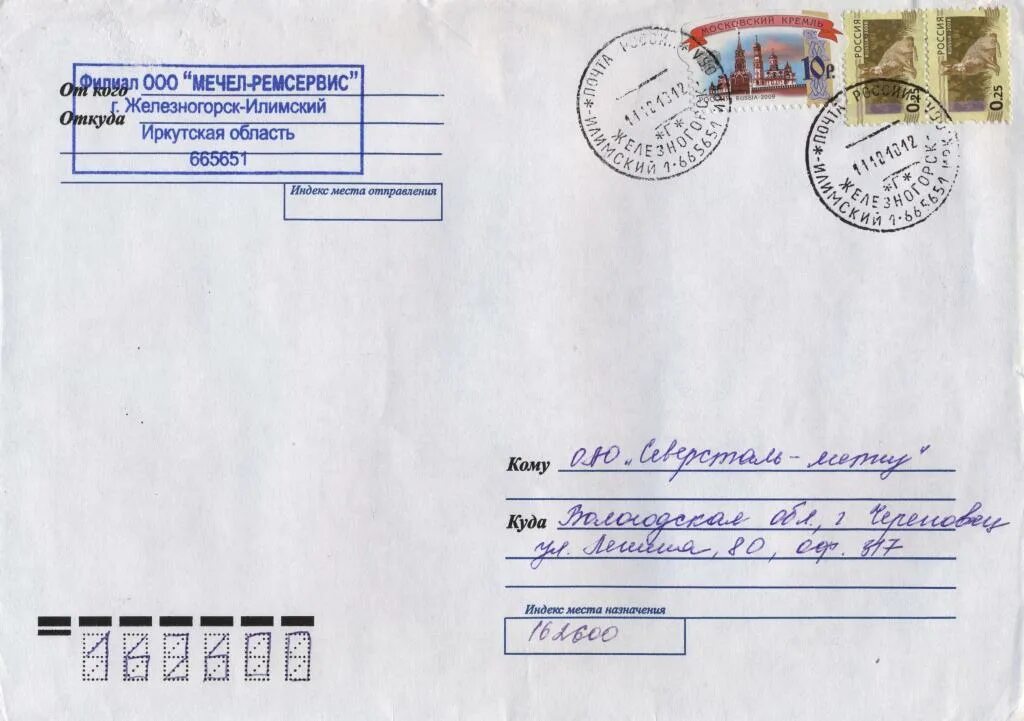 От кого Филиал ООО "МЕЧЕЛ-РЕМСЕРВИС"
г. Железногорск-Илимский
Откуда
Иркутская область
665651
Индекс места отправления
МОСКОВСКИЙ КРЕМЛЬ
10 Р.
RUSSIA·2009
РОССИЯ
0.25
РОССИЯ
0.25
ПОЧТА РОССИИ
ЖЕЛЕЗНОГОРСК
*Г*
*ИЛИМСКИЙ 1·665651
ПОЧТА РОССИИ
ЖЕЛЕЗНОГОРСК
*Г*
*ИЛИМСКИЙ 1·665651
Кому ОАО „Северсталь-метиз"
Куда Вологодская обл., г Череповец
ул. Ленина, 80, оф. 317
Индекс места назначения
162600
162600